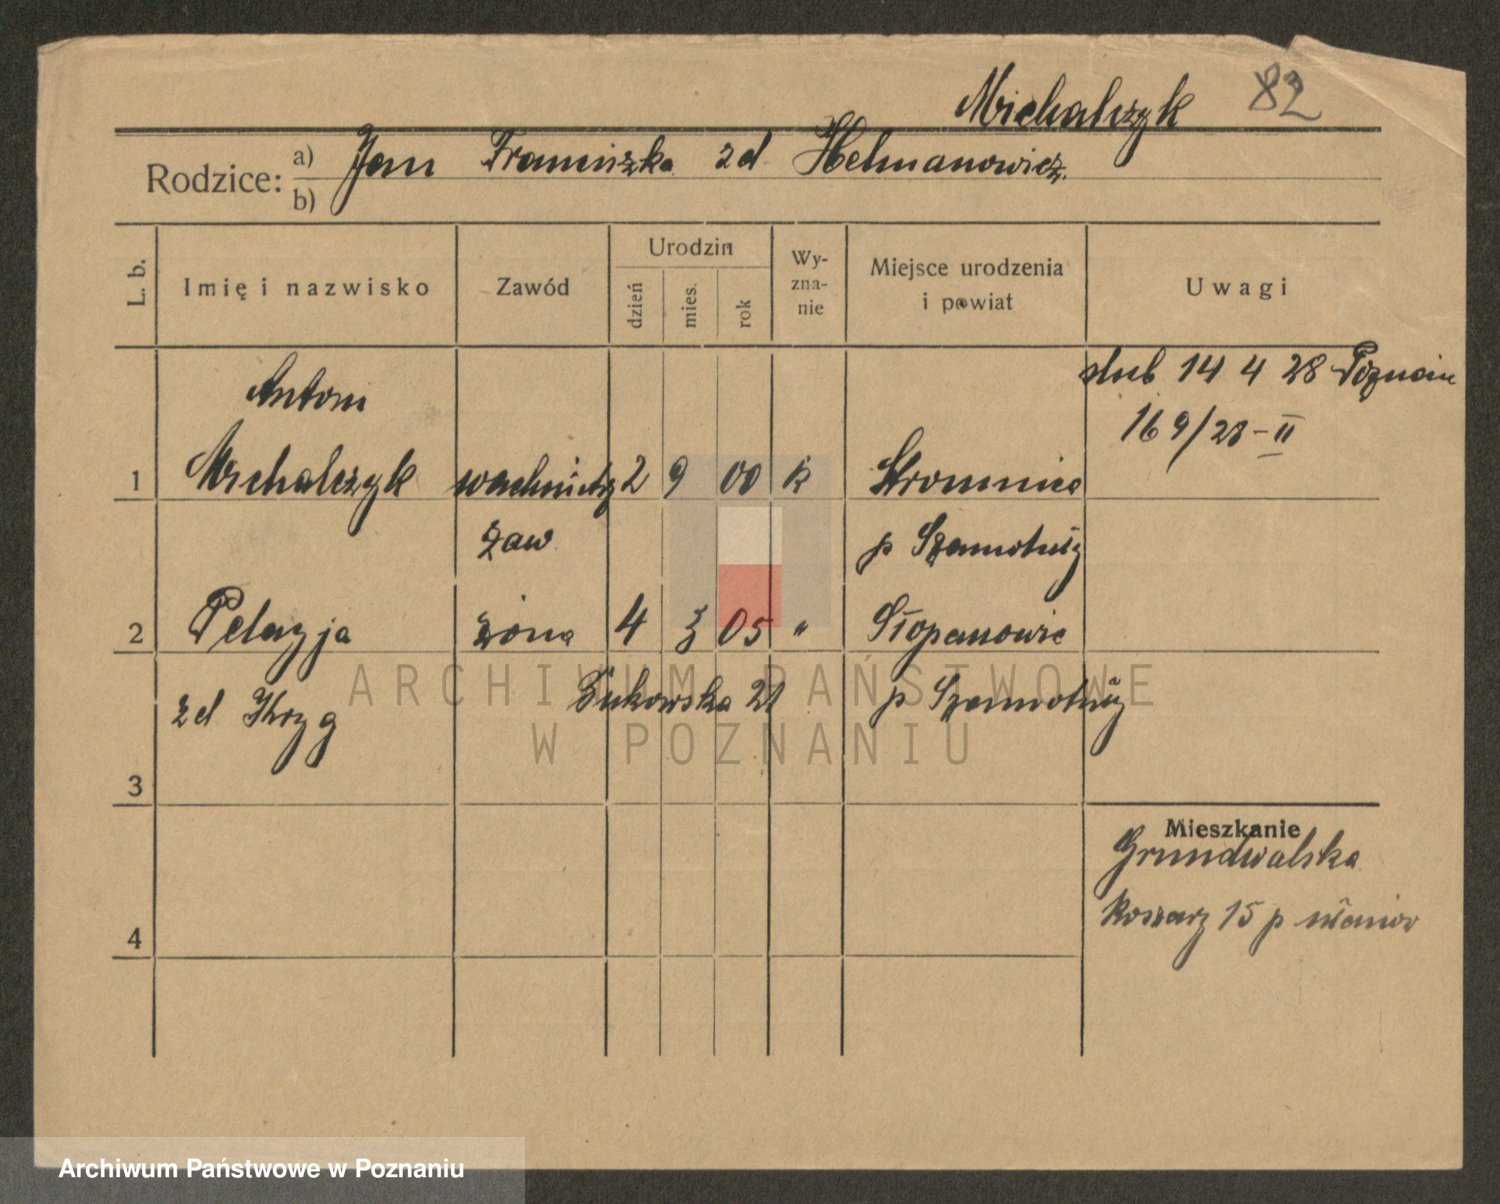 Michalczyk 82
Rodzice: a) Jan Franciszka zd Helmanowicz.
b)
L. b. Imię i nazwisko Zawód Urodzin dzień mies. rok Wy-zna-nie Miejsce urodzenia i powiat Uwagi
ślub 14 4 28 Poznań
Antoni
169/28-II
1 Michalczyk wachmistrz 2 9 00 k
zaw. p Szamotuły
2 Pelagja żona 4 3 05 " Słopanowie
zd Kryg Bukowska 21 p Szamotuły
3
Mieszkanie
Grundwalska
Koszary 15 p ułanów
4
ARCHIWUM PAŃSTWOWE
W POZNANIU
Archiwum Państwowe w Poznaniu